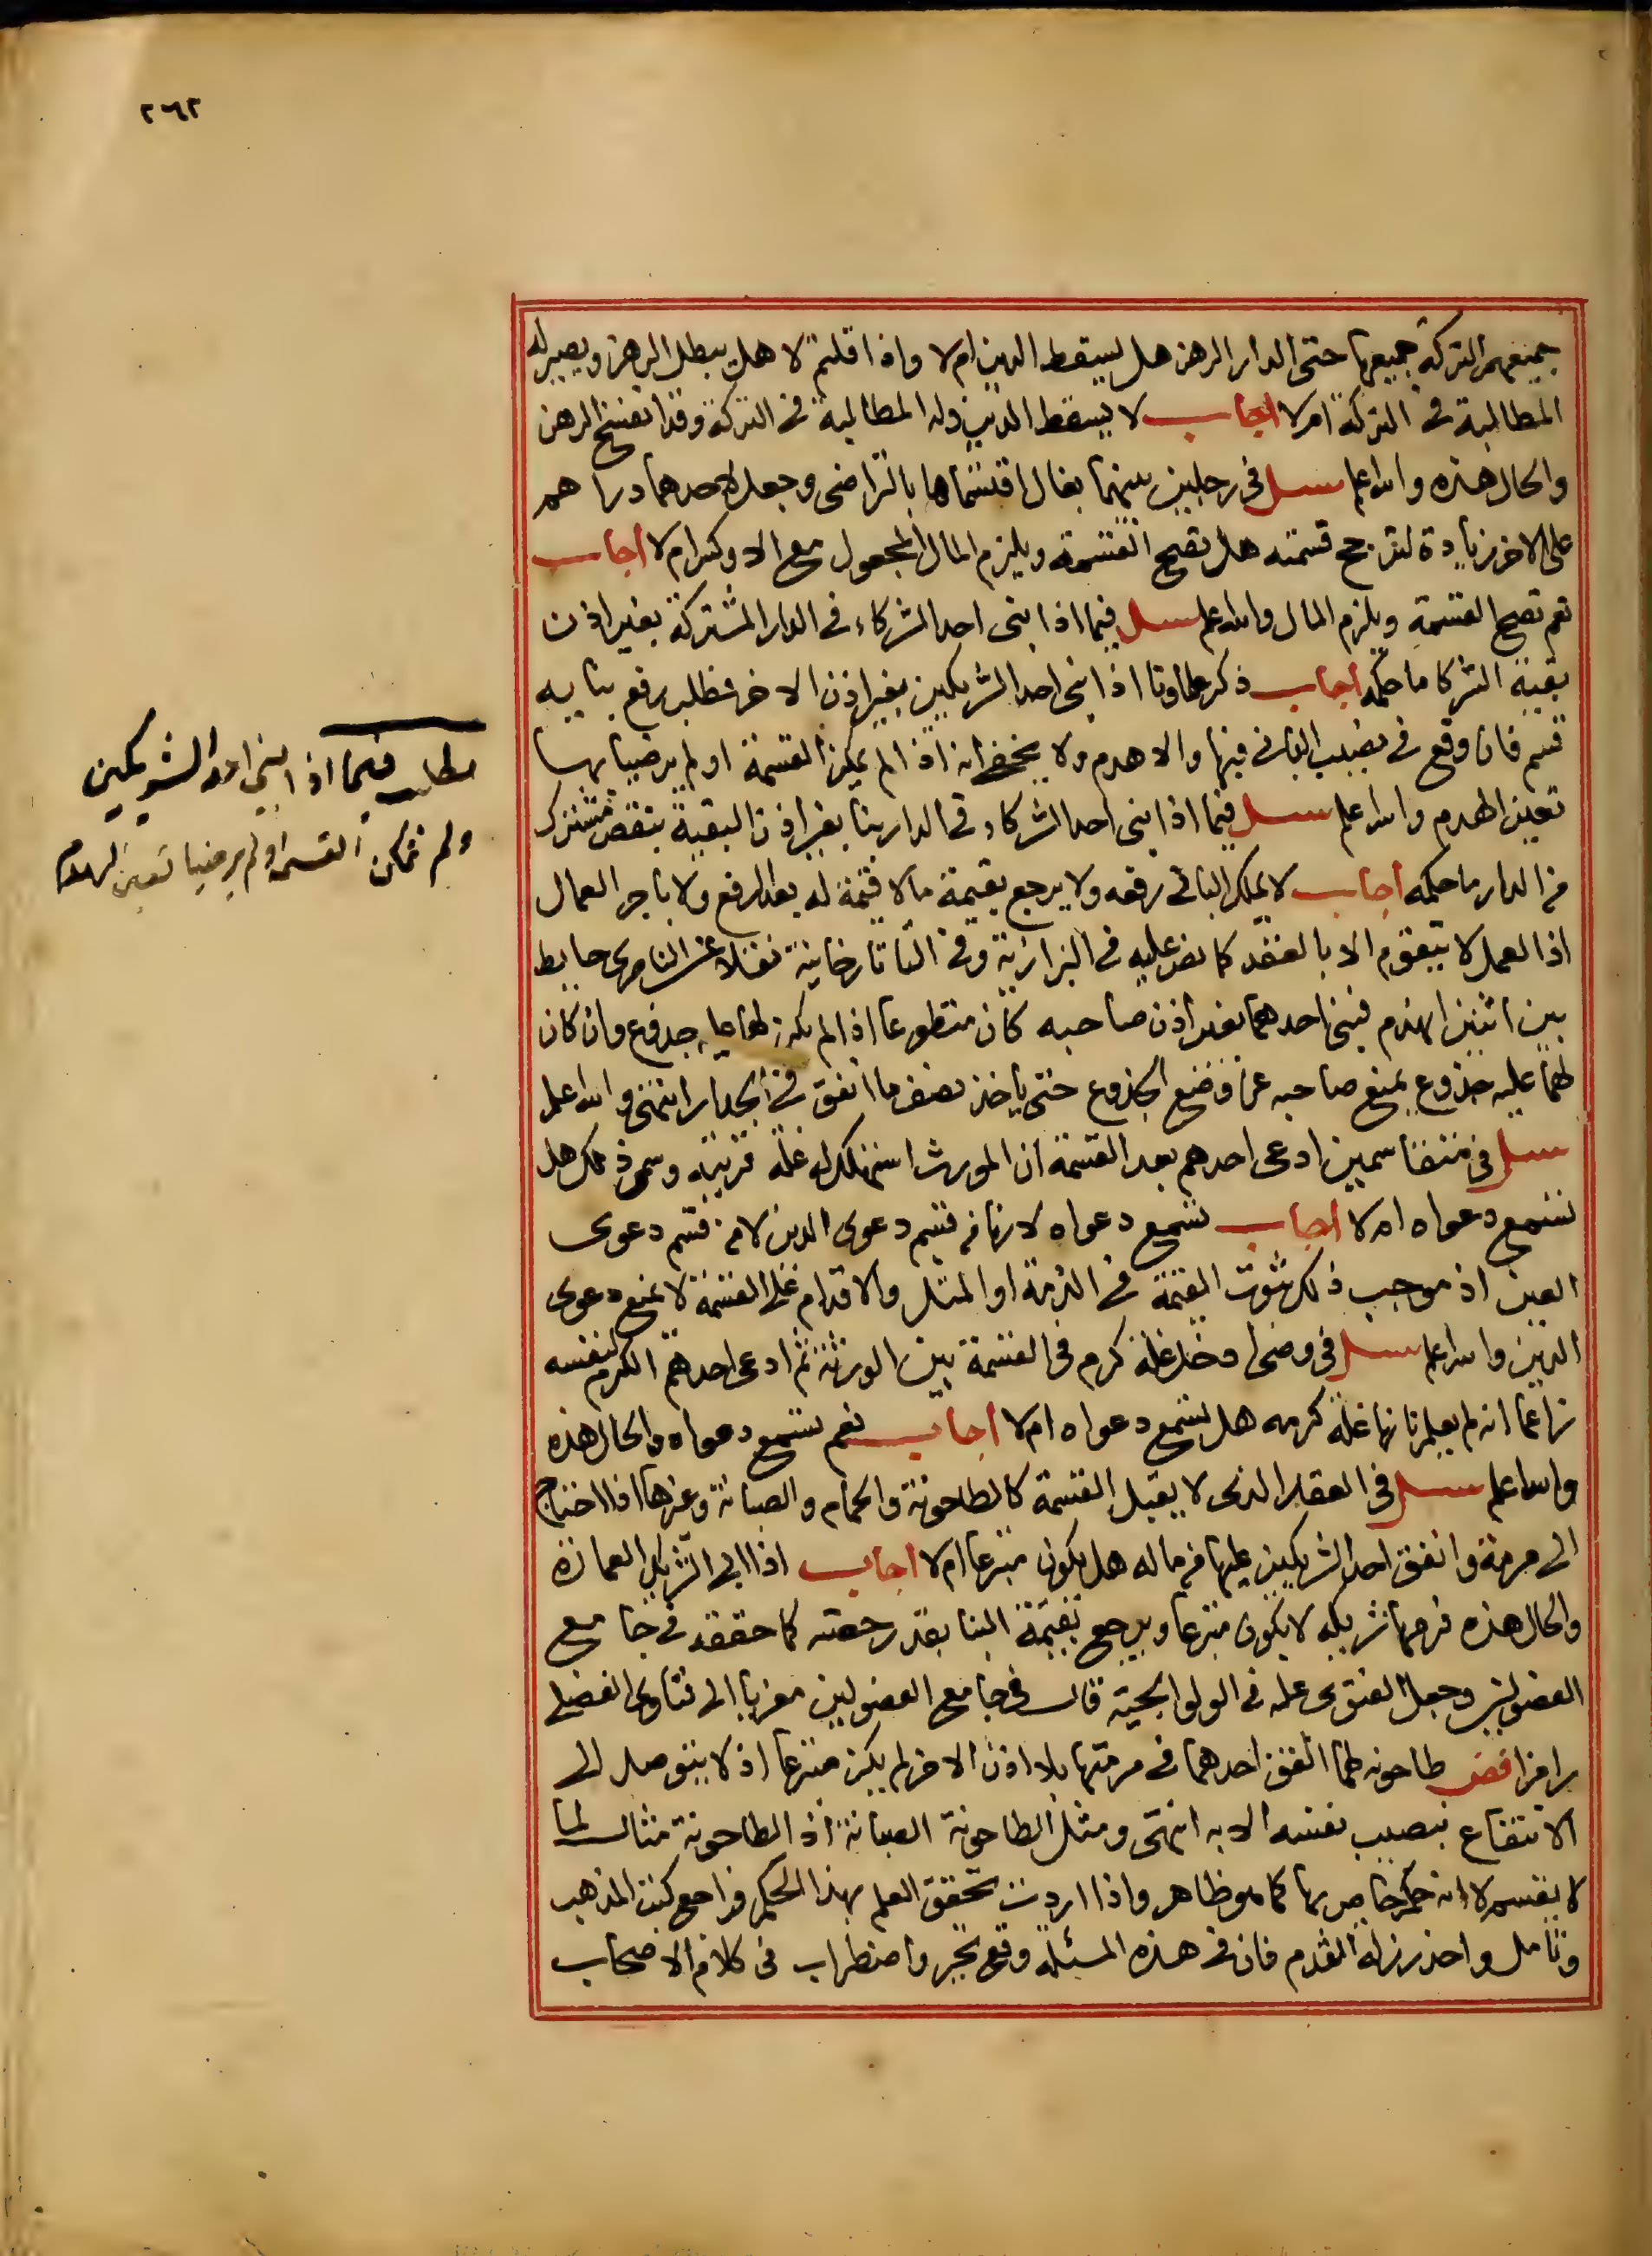 ٢٦٢
جميعهم التركة جميعها حتى الدار الرهن هل يسقط الدين ام لا واذا قلتم لا هل يبطل الرهن ويصير له
المطالبة فى التركة ام لا اجاب لا يسقط الدين وله المطالبة فى التركة وقد انفسخ الرهن
والحال هذه والله اعلم سئل فى رجلين بينهما بغال اقتسماها بالتراضى وجعل لاحدهما دراهم
على الاخر زيادة لترجح قسمته هل تصح القسمة ويلزم المال المجعول مع الاوكس ام لا اجاب
نعم تصح القسمة ويلزم المال والله اعلم سئل فيما اذا بنى احد الشركاء فى الدار المشتركة بغير اذن
بقية الشركا ما حكمه اجاب ذكر علماونا اذا بنى احد الشريكين بغير اذن الاخر فطلب رفع بنايه
قسم فان وقع فى نصيب البانى فبها والا هدم ولا يخفى انه اذا لم يمكن القسمة او لم يرضيا بها
تعين الهدم والله اعلم سئل فيما اذا بنى احد الشركاء فى الدار بنا بغير اذن البقية بنقض مشترك
من الدار ما حكمه اجاب لا يملك البانى رفعه ولا يرجع بقيمة ما لا قيمة له بعد الرفع ولا باجر العمال
اذ العمل لا يتقوم الا بالعقد كما نص عليه فى البزازية وفى التاتارخانية نقلا عن الناصرى حايط
بين اثنين انهدم فبنى احدهما بغير اذن صاحبه كان متطوعا اذا لم يكن لهما عليه جذوع وان كان
لهما عليه جذوع يمنع صاحبه عن وضع الجذوع حتى ياخذ نصف ما انفق فى الجدار انتهى والله اعلم
سئل فى متقاسمين ادعى احدهم بعد القسمة ان المورث استهلك له غلة قريته وسمى ذلك هل
تسمع دعواه ام لا اجاب تسمع دعواه لانها من قسم دعوى الدين لا من قسم دعوى
العين اذ موجب ذلك ثبوت القيمة فى الذمة او المثل والاقدام على القسمة لا يمنع دعوى
الدين والله اعلم سئل فى وصى ادخل غلة كرم فى القسمة بين الورثة ثم ادعى احدهم الكرم لنفسه
زاعما انه لم يعلم بانها غلة كرمه هل تسمع دعواه ام لا اجاب نعم تسمع دعواه والحال هذه
والله اعلم سئل فى العقار الذى لا يقبل القسمة كالطاحونة والحمام والصبانة وغيرها اذا احتاج
الى مرمة وانفق احد الشريكين عليها من ماله هل يكون متبرعا ام لا اجاب اذا ابى الشريك العمارة
والحال هذه فرمها شريكه لا يكون متبرعا ويرجع بقيمة البنا بقدر حصته كما حققه فى جامع
الفصولين وجعل الفتوى عليه فى الولوالجية قال فى جامع الفصولين معزيا الى فتاوى الفضلى
رامزا فض طاحونه لهما انفق احدهما فى مرمتها بلا اذن الاخر لم يكن متبرعا اذ لا يتوصل الى
الانتفاع بنصيب نفسه الا به انتهى ومثل الطاحونة الصبانة اذ الطاحونة مثال لما
لا يقسم لا انه حكم خاص بها كما هو ظاهر واذا اردت تحقق العلم بهذا الحكم فراجع كتب المذهب
وتامل واحذر زلة القدم فان فى هذه المسئلة وقع تحير واضطراب فى كلام الاصحاب
مطلب فيما اذا بنى احد الشريكين
ولم تمكن القسمة او لم يرضيا تعين الهدم